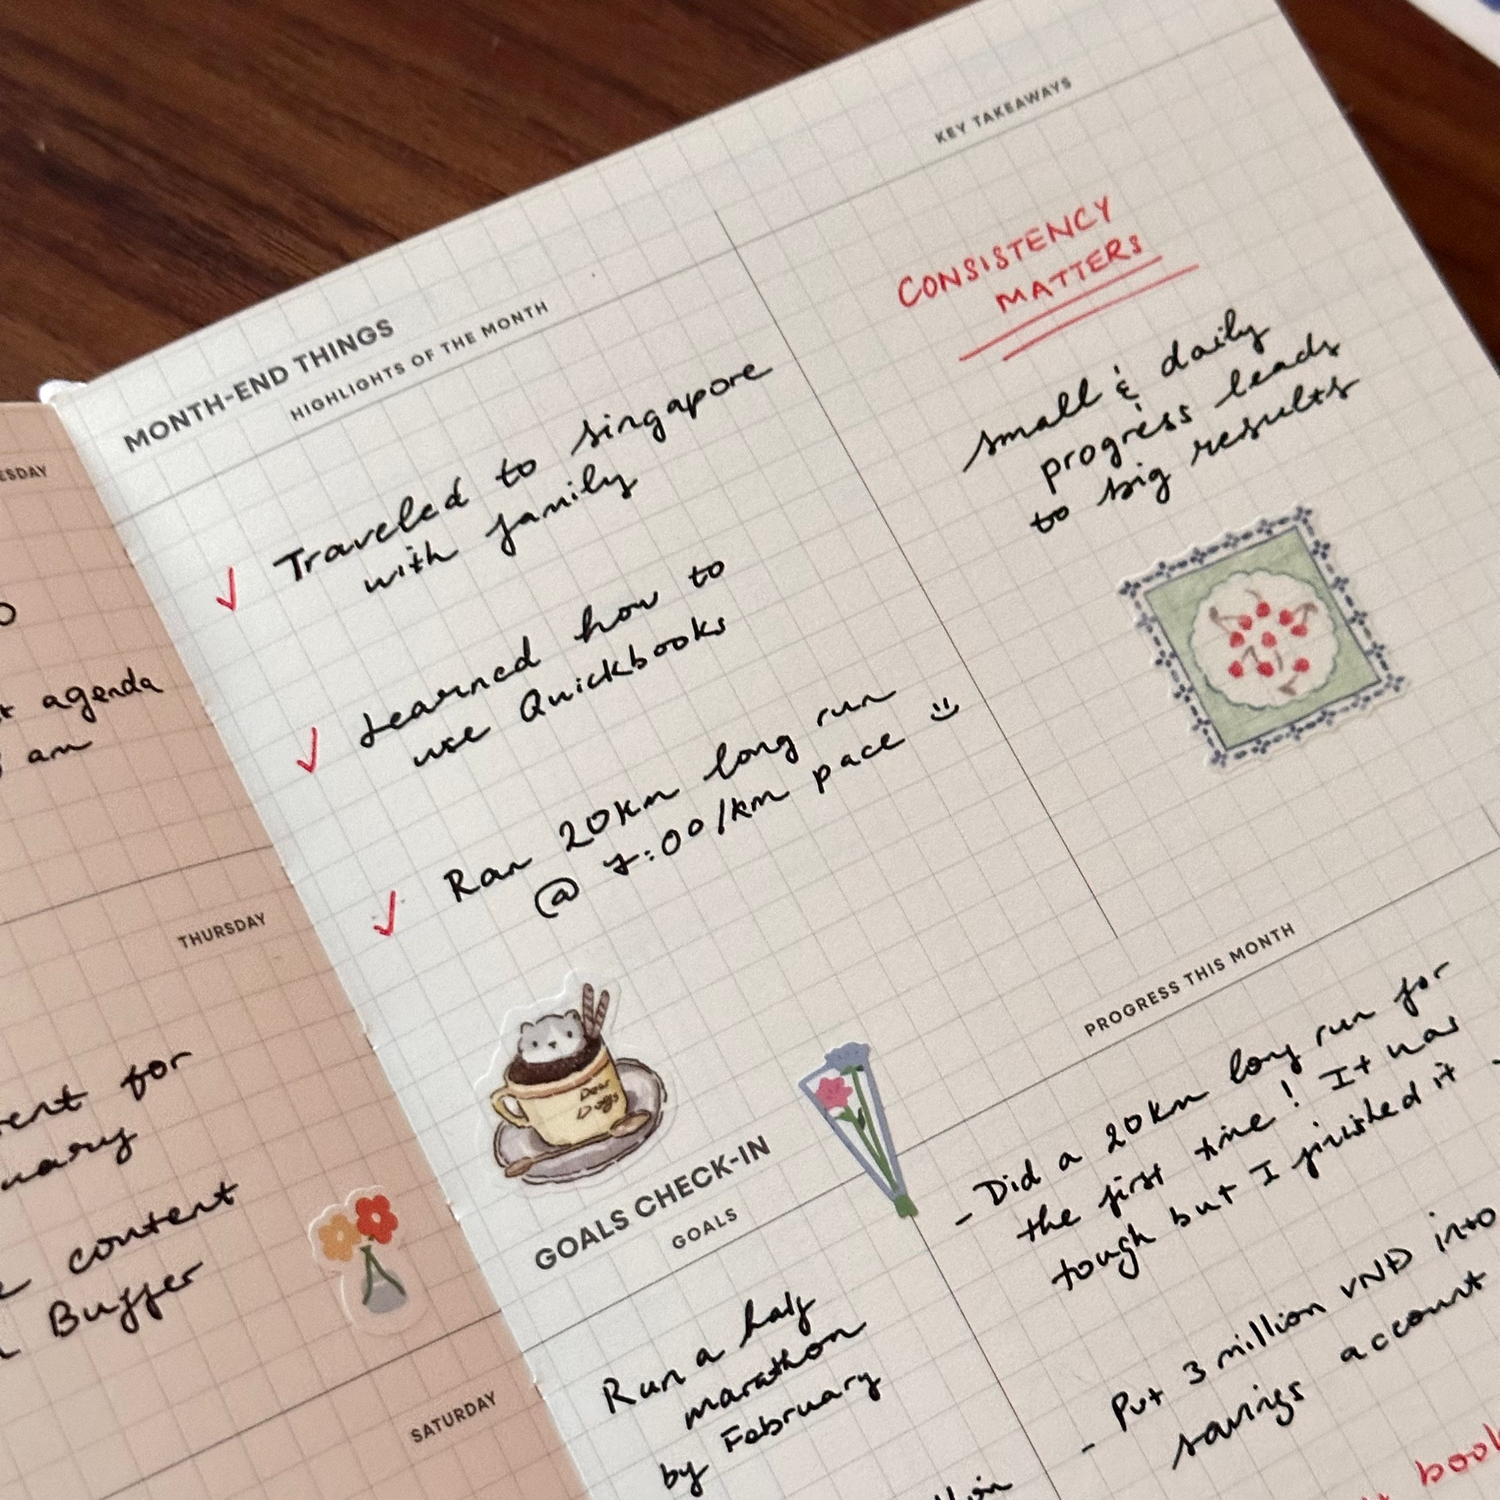 MONTH-END THINGS
HIGHLIGHTS OF THE MONTH
Traveled to singapore
with family
Learned how to
use Quickbooks
Ran 20km long run
@ 7:00/km pace
KEY TAKEAWAYS
CONSISTENCY
MATTERS
small & daily
progress leads
to big results
Dear
Dogs
GOALS CHECK-IN
GOALS
Run a half
marathon
by February
PROGRESS THIS MONTH
- Did a 20km long run for
the first time! It was
tough but I finished it
- Put 3 million VNĐ into
savings account
agenda
am
THURSDAY
for
content
Buffer
SATURDAY